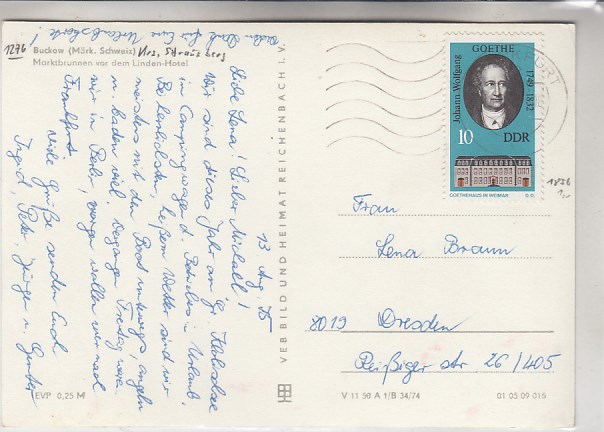 1276
Buckow (Märk. Schweiz) Krs. Strausberg
Marktbrunnen vor dem Linden-Hotel
13. Aug. 75
Liebe Lena! Lieber Michael!
Wir sind dieses Jahr am Gr.
in Campingwagen d. Betriebes in Urlaub.
Bei herrlichstem, heißem Wetter sind wir
meistens mit dem Boot unterwegs, angeln
u. baden viel. Vergangenen Freitag waren
wir in Berlin, morgen wollen wir nach
Frankfurt.
Viele Grüße senden Euch
Ingrid, Peter, Jürgen u.
Vielen Dank für Eure
Urlaubskarte!
VEB BILD UND HEIMAT REICHENBACH i. V.
Johann-Wolfgang
GOETHE
1749-1832
10
DDR
GOETHEHAUS IN WEIMAR
1836
1,-
Frau
Lena Braun
8019 Dresden
Reißiger Str. 26/405
EVP 0,25 M
V 11 50 A 1/B 34/74
01 05 09 016